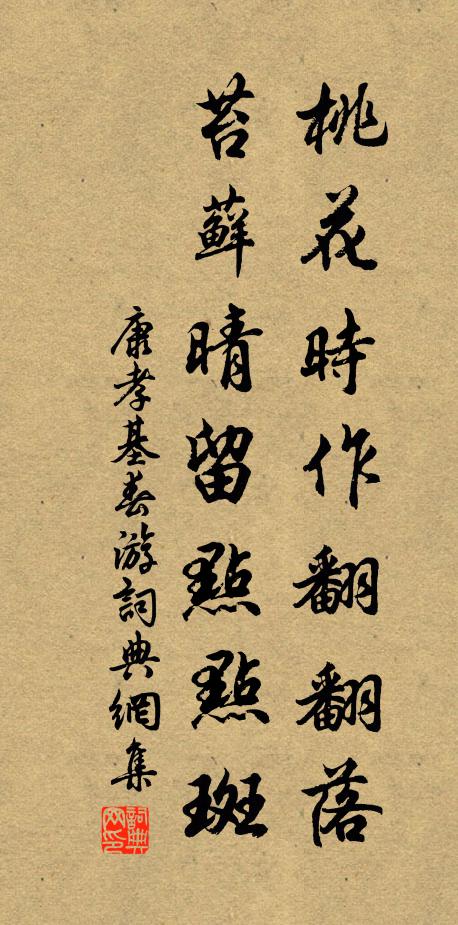 桃花時作翻翻落
苔蘚晴留點點斑
康孝基春游詞典網集
詞典網印